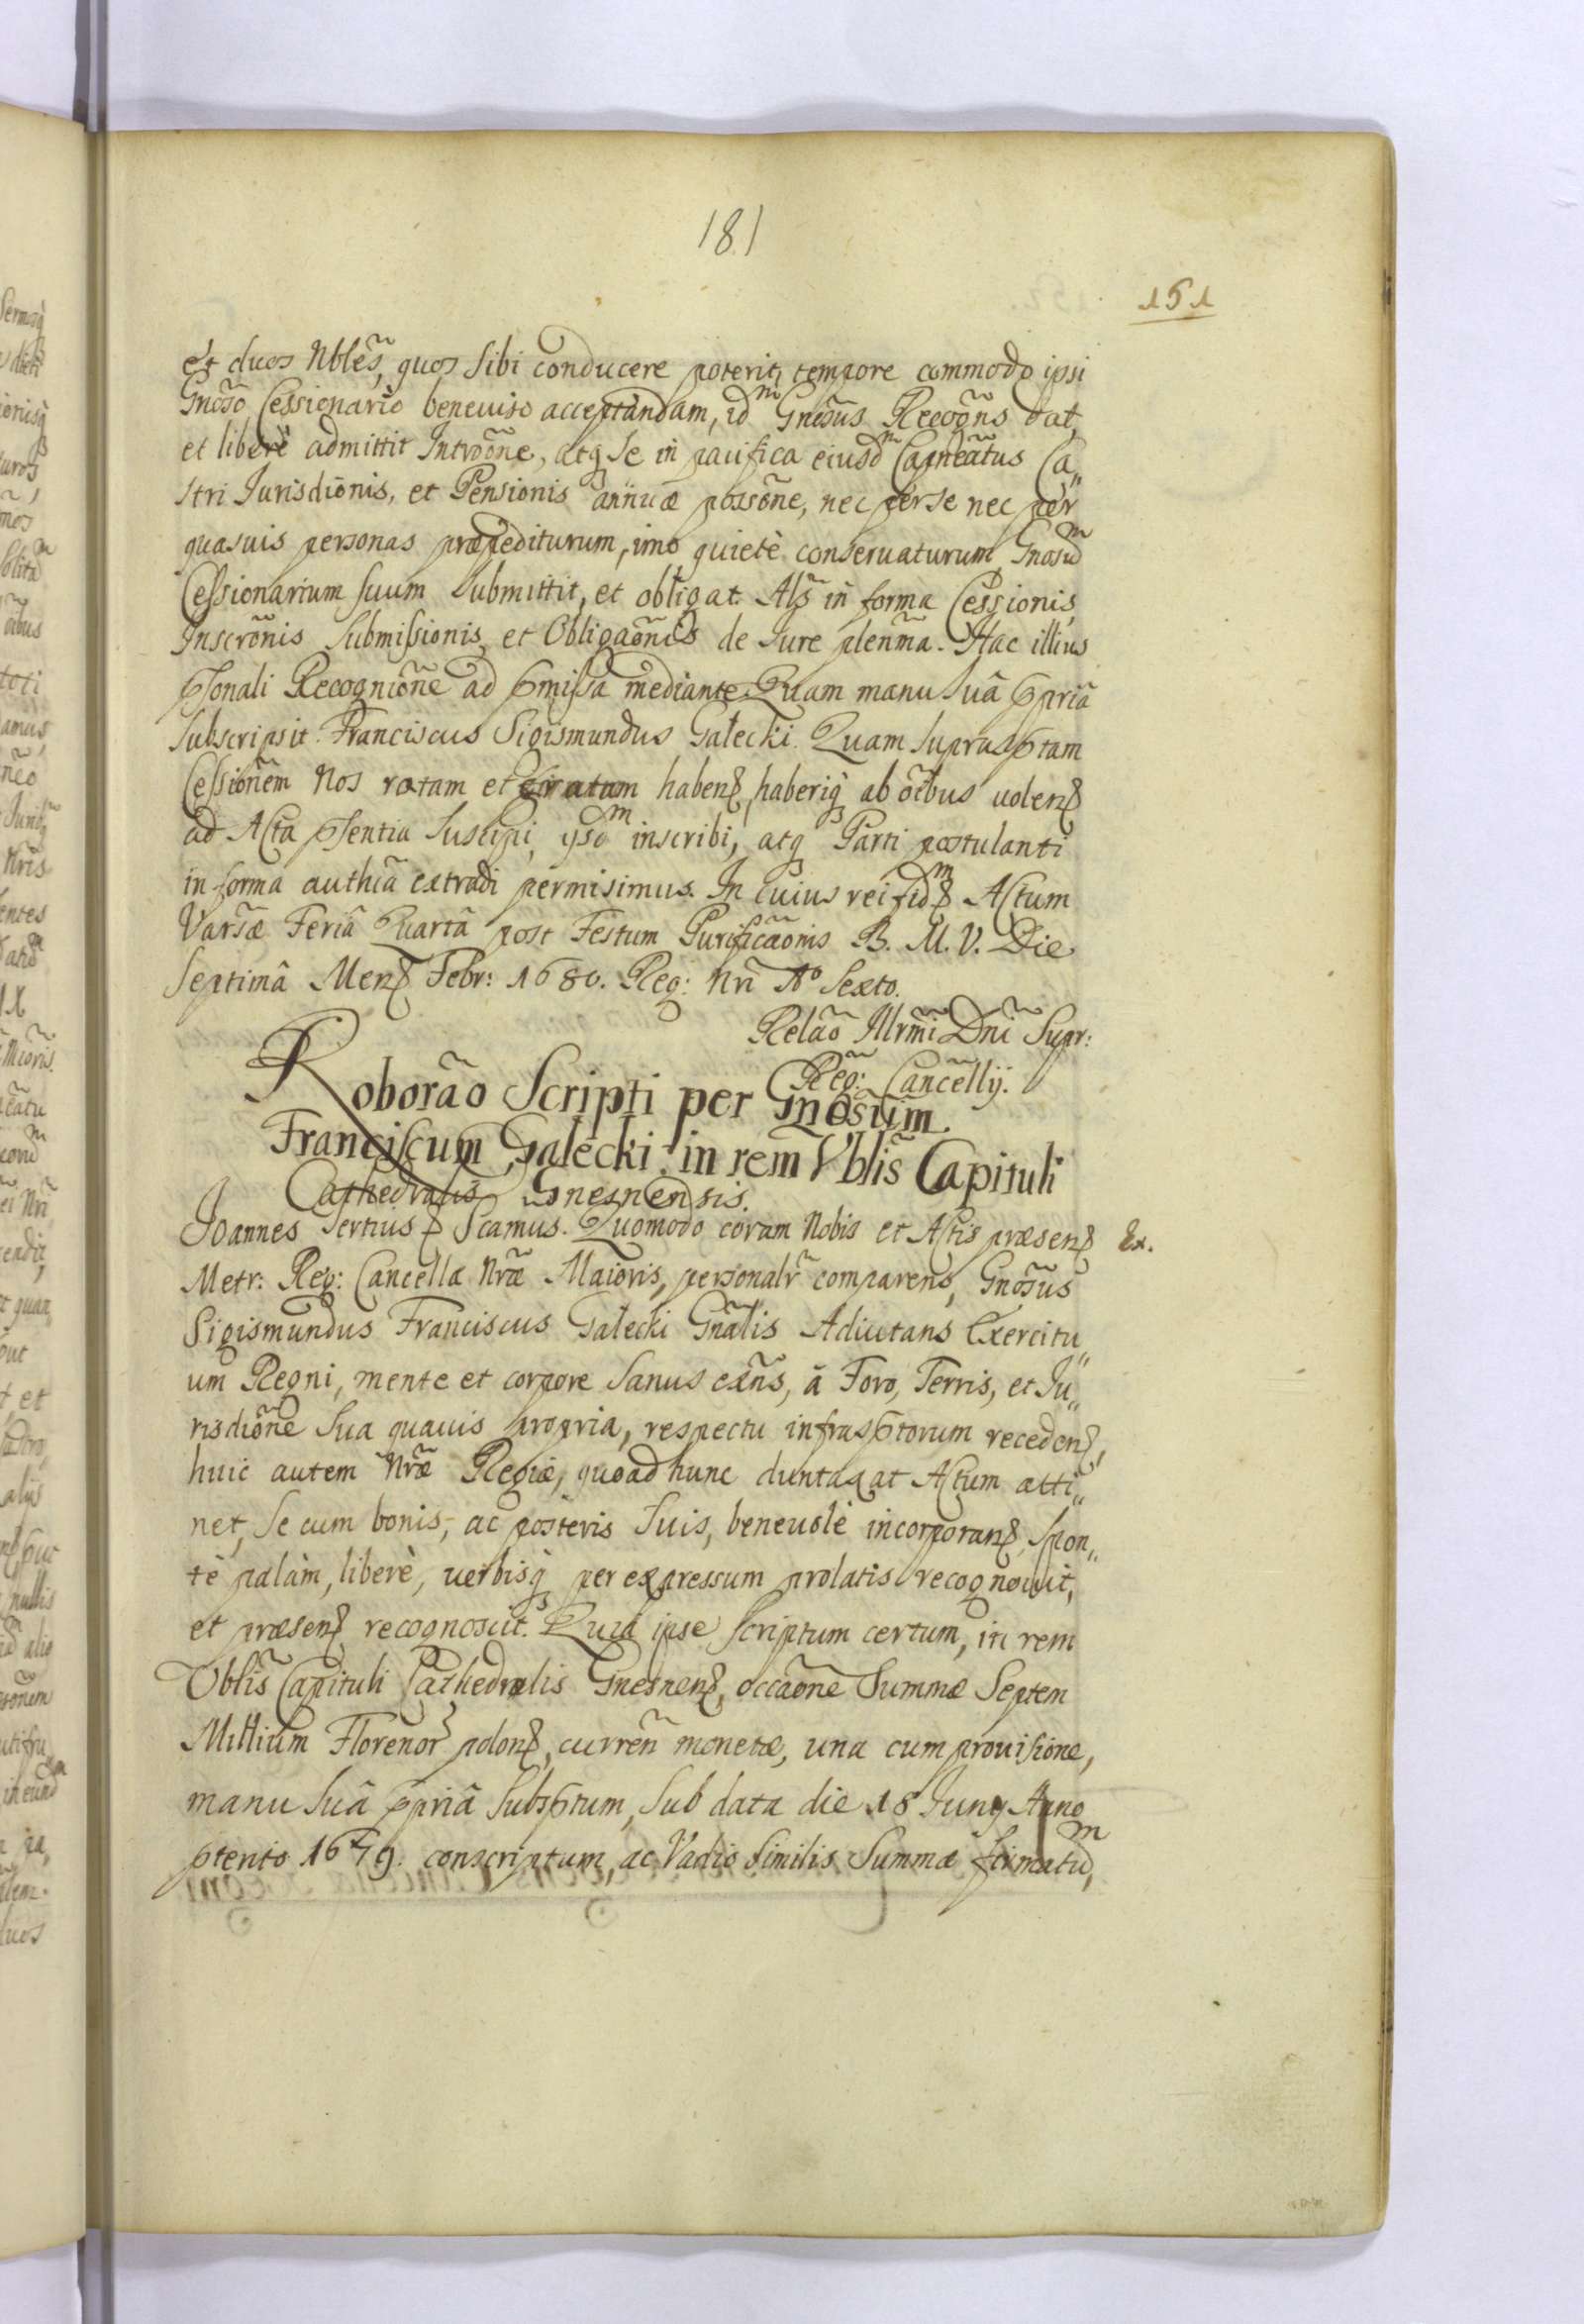 181
151
et duos Nbles̃, quos sibi conducere poterit, tempore commodo ipsi
Gnõso Cessionario beneviso acceptandam, idᵐ Gnõsus Recogñs dat,
et liberè admittit Introõne, atq̃ se in pacifica eiusdᵐ Capneãtus Ca„
stri Jurisdiõnis, et Pensionis annuæ possõne, nec per se nec per
quasuis personas præpediturum, imo quietè conseruaturum Gnosũdᵐ
Cessionarium suum submittit, et obligat. Als̃ in forma Cessionis,
Inscrõnis Submissionis, et Obligaõnis de Jure plenm̃a. Hac illius
psonali Recogniõne ad pmissa mediante. Quam manu suâ ppriâ
subscripsit. Franciscus Sigismundus Gałecki. Quam suprasptam
Cessionẽm Nos ratam et gratam habenֆ, haberiq̃ ab oĩbus uolenֆ
ad Acta psentia suscipi, ysdᵐ inscribi, atq̃ Parti postulanti
in forma authiã extradi permisimus. In cuius rei fidᵐֆ Actum
Varsæ Feriâ Quartâ post Festum Purificaõnis B. M. V. Die
Septimâ Menֆ Febr: 1680. Reg: Nri Aº Sexto.
Relaõ Illrmi Dni Supr:
Reg: Cancellỹ.
Roboraõ Scripti per Gnosum.
Franciscum Gałecki in rem Vblis̃ Capituli
Cathedralis Gnesnensis.
Joannes Tertius ֆ Scamus. Quomodo coram Nobis et Actis præsenֆ
Ex.
Metr: Reg: Cancellæ Nræ Maioris, personalr̃ comparens, Gnosus̃
Sigismundus Franciscus Gałecki Gnãlis Adiutans Exercitu„
um Regni, mente et corpore sanus exñs, à Foro, Terris, et Ju„
risdiõne sua quauis propria, respectu infrasptorum recedenֆ,
huic autem Nræ Regiæ, quoad hunc duntaxat Actum atti„
net, se cum bonis, ac posteris suis, beneuolè incorporanֆ, spon„
tè palàm, liberè, uerbisq̃ per expressum prolatis recognouit,
et præsenֆ recognoscit. Quia ipse scriptum certum, in rem
Vblis̃ Capituli Cathedralis Gnesnenֆ, occaõne Summæ Septem
Millium Florenor polonֆ, curreñ monetæ, una cum prouisione,
manu suâ ppriâ subsptum, sub data die 18 Juny Anno
pterito 1679. conscriptum, ac Vadio similis Summæ firmatũᵐ,